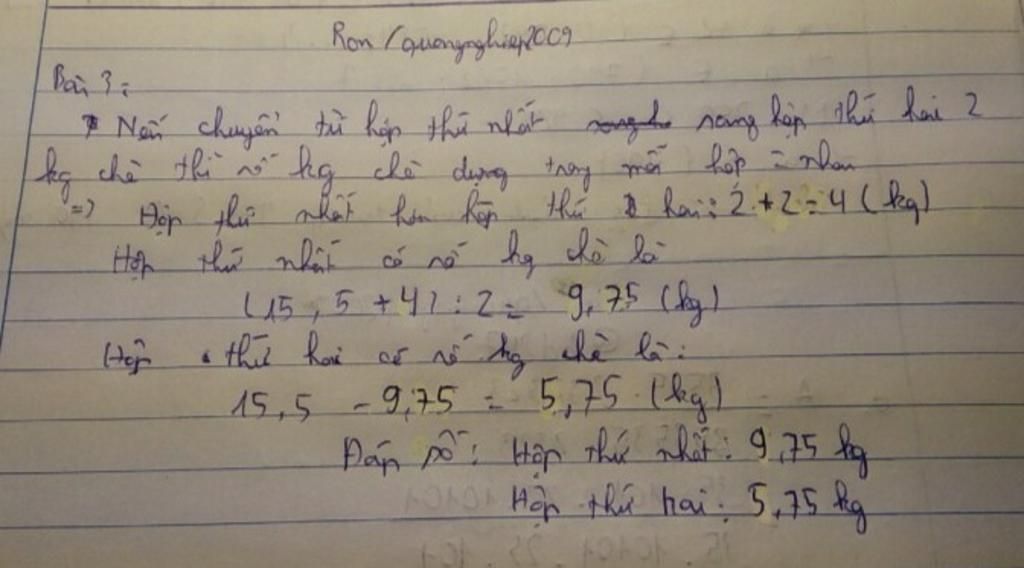 Ron/quangnghiep2009
Bài 3:
Nếu chuyển từ hộp thứ nhất sang hộp thứ hai 2
kg chè thì số kg chè đựng trong mỗi hộp = nhau
=> Hộp thứ nhất hơn hộp thứ hai: 2 + 2 = 4 (kg)
Hộp thứ nhất có số kg chè là
(15,5 + 4) : 2 = 9,75 (kg)
Hộp thứ hai có số kg chè là:
15,5 - 9,75 = 5,75 (kg)
Đáp số: Hộp thứ nhất: 9,75 kg
Hộp thứ hai: 5,75 kg